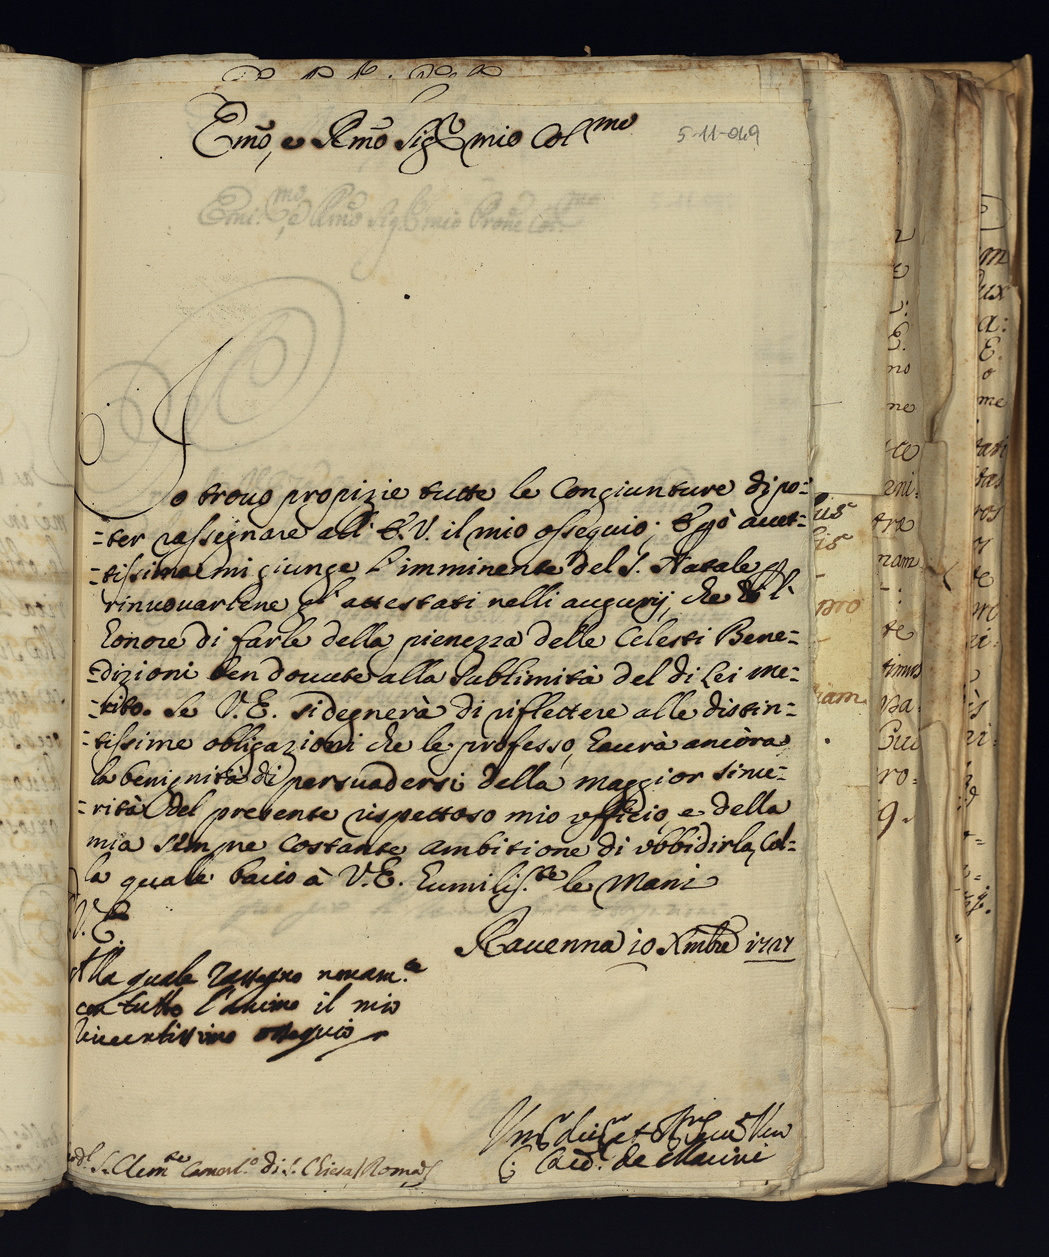 Emo, e Rmo Sigr mio Colmo
5-11-049
Io trouo propizie tutte le Congiunture di po=
=ter rassegnare all' E.V. il mio ossequio; E però accet=
=tissima mi giunge l'imminente del S. Natale p
rinuouarlene gl' attestati nelli augurij, che hò l'
honore di farle della pienezza delle Celesti Bene=
=dizioni ben douute alla sublimità del di Lei me=
=rito. Se V.E. si degnerà di riflettere alle distin=
=tissime obligazioni che le professo, hauerà ancora
la benignità di persuadersi della maggior since=
=rità del presente rispettoso mio officio, e della
mia sempre costante ambitione di vbbidirla, Col=
la quale bacio à V.E. humilis.te le Mani
V.E.
Rauenna 10 Xmbre 1727
Alla quale rassegno nouam.te
con tutto l'animo il mio
riuerentissimo ossequio
C. Card. de Marini
S. Clemte Camerl.o di S. Chiesa / Roma